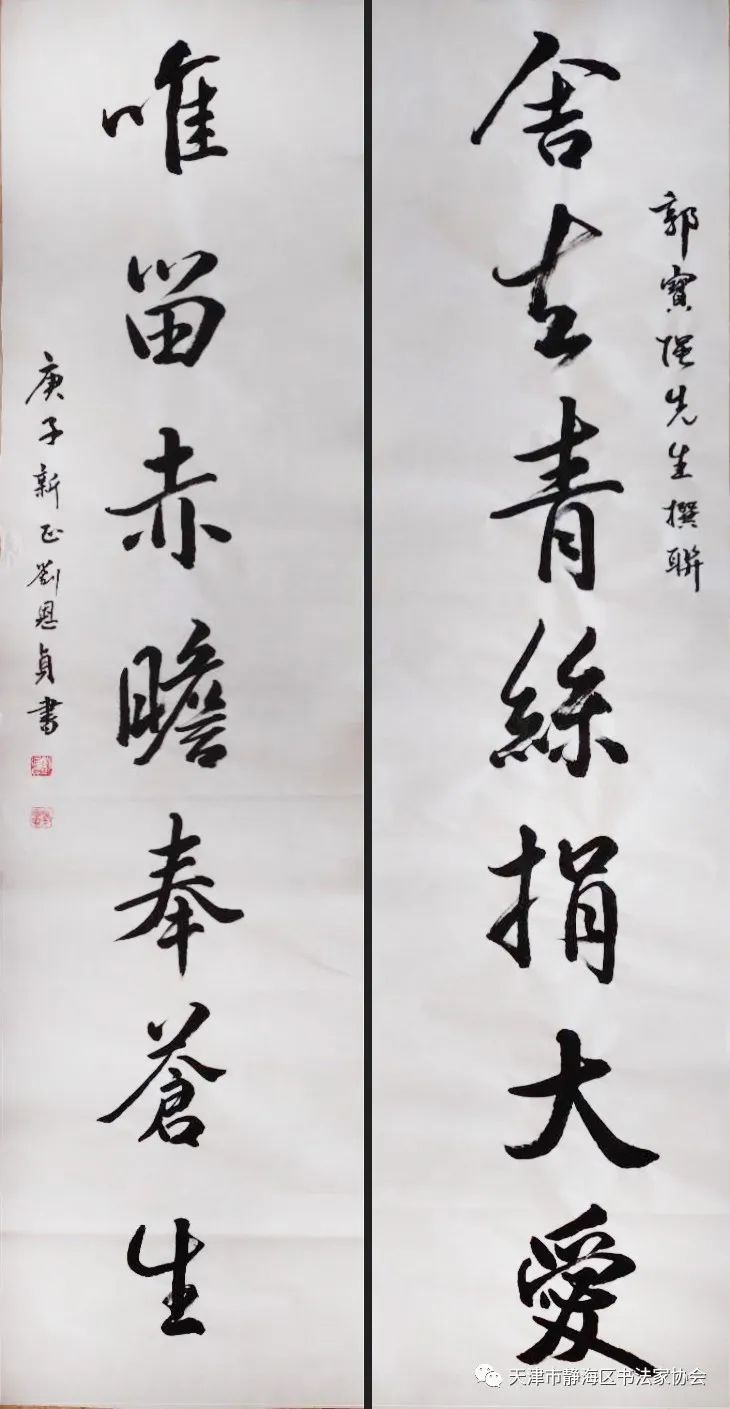 郭寶先生撰聯
舍去青絲捐大愛
唯留赤膽奉蒼生
庚子新正劉恩貞書
天津市静海区书法家协会